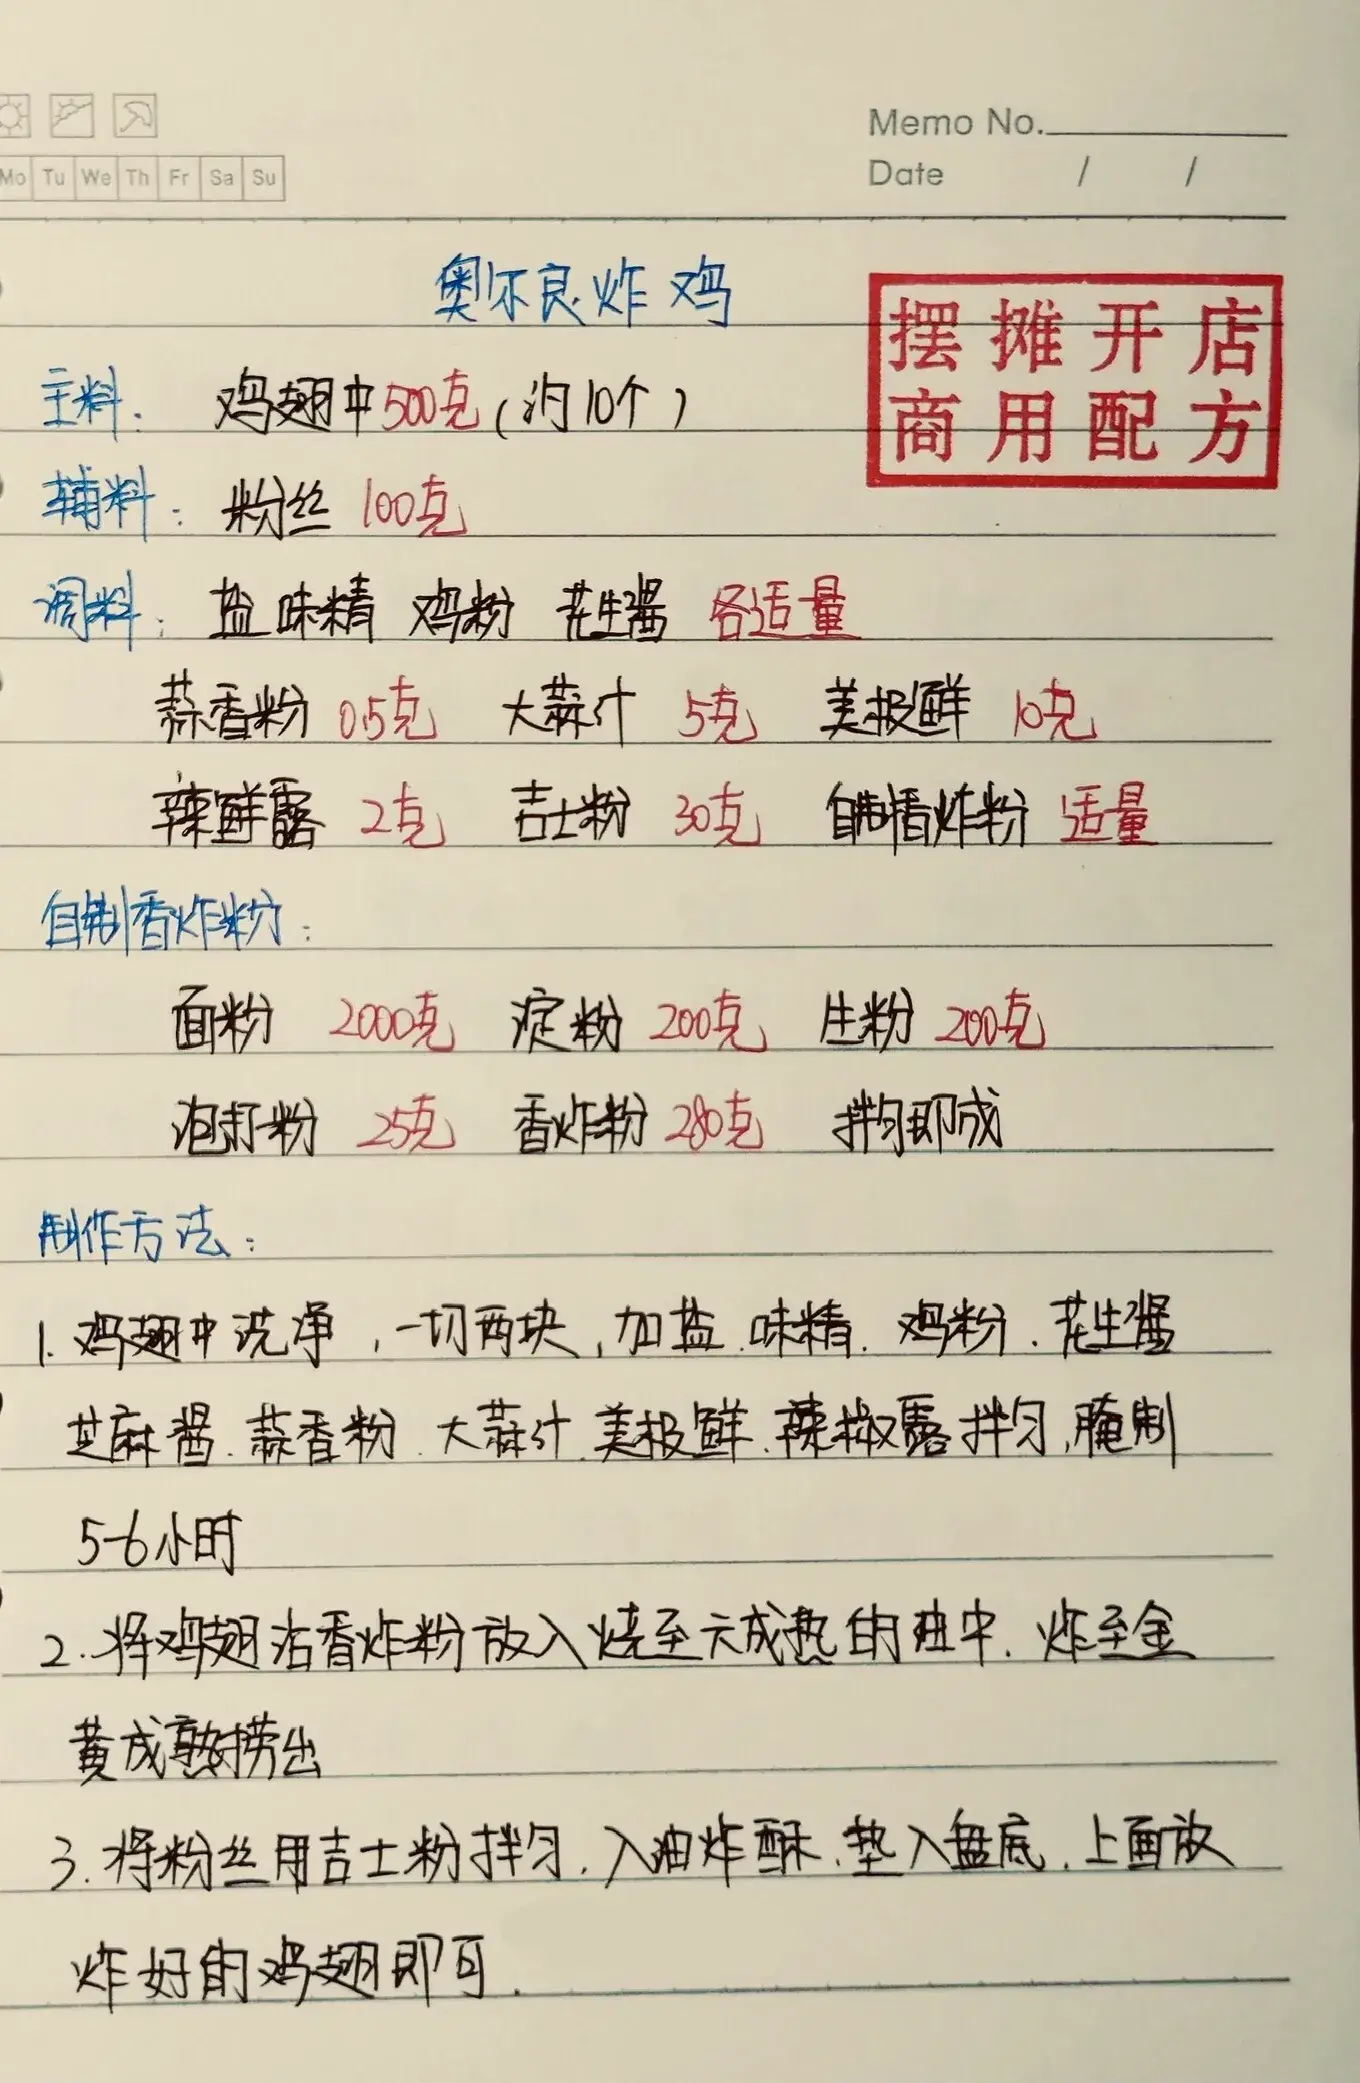 Memo No.
Mo Tu We Th Fr Sa Su
Date / /
奥尔良炸鸡
摆摊开店
商用配方
主料: 鸡翅中500克(约10个)
辅料: 粉丝 100克
调料: 盐 味精 鸡粉 花生酱 各适量
蒜香粉 0.5克 大蒜汁 5克 美极鲜 10克
辣鲜露 2克 吉士粉 30克 自制香炸粉 适量
自制香炸粉:
面粉 2000克 淀粉 200克 生粉 200克
泡打粉 25克 香炸粉 280克 拌匀即成
制作方法:
1. 鸡翅中洗净,一切两块,加盐.味精.鸡粉.花生酱
芝麻酱.蒜香粉.大蒜汁.美极鲜.辣椒露拌匀,腌制
5-6小时
2. 将鸡翅沾香炸粉放入烧至六成热的油中.炸至金
黄成熟捞出
3. 将粉丝用吉士粉拌匀.入油炸酥.垫入盘底.上面放
炸好的鸡翅即可.